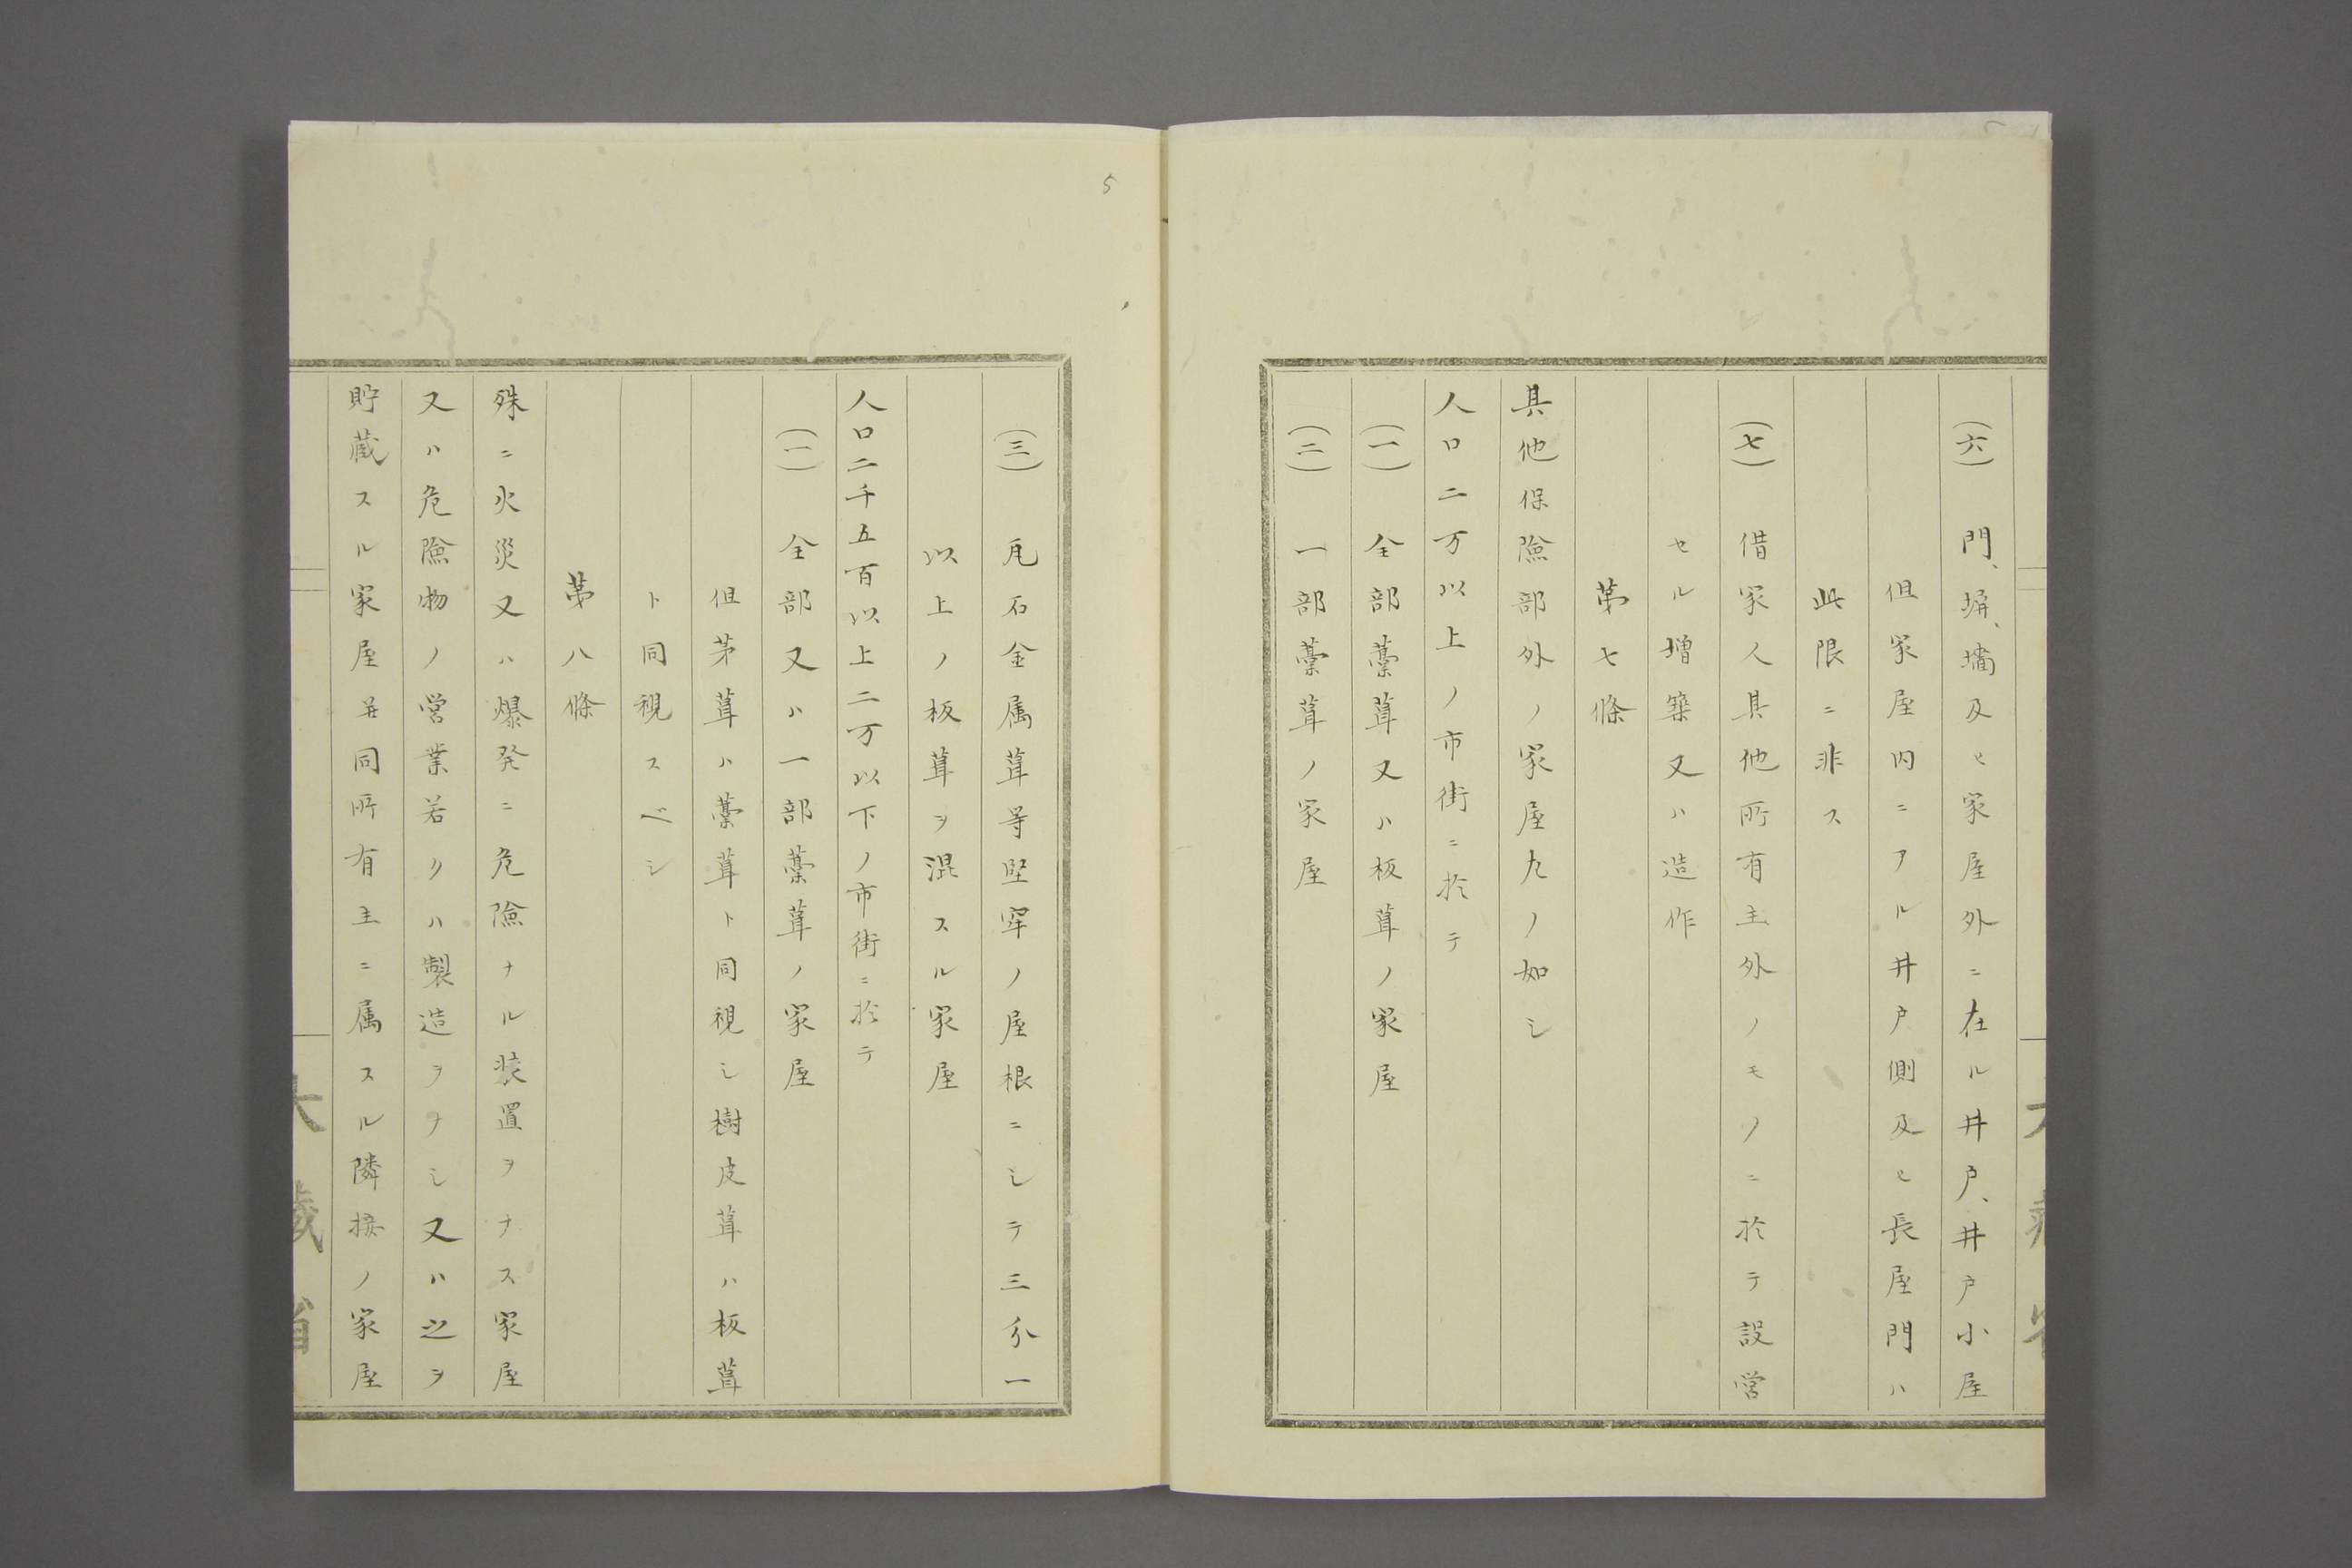 (六) 門、塀、墻及ヒ家屋外ニ在ル井戸、井戸小屋
但家屋内ニアル井戸側及ヒ長屋門ハ
此限ニ非ス
(七) 借家人其他所有主外ノモノニ於テ設営
セル増築又ハ造作
第七條
其他保險部外ノ家屋左ノ如シ
人口二万以上ノ市街ニ於テ
(一) 全部藁葺又ハ板葺ノ家屋
(二) 一部藁葺ノ家屋
5
(三) 瓦石金属葺等堅牢ノ屋根ニシテ三分一
以上ノ板葺ヲ混スル家屋
人口二千五百以上二万以下ノ市街ニ於テ
(一) 全部又ハ一部藁葺ノ家屋
但茅葺ハ藁葺ト同視シ樹皮葺ハ板葺
ト同視スベシ
第八條
殊ニ火災又ハ爆発ニ危險ナル装置ヲナス家屋
又ハ危險物ノ営業若クハ製造ヲナシ又ハ之ヲ
貯蔵スル家屋并同所有主ニ属スル隣接ノ家屋
大藏省